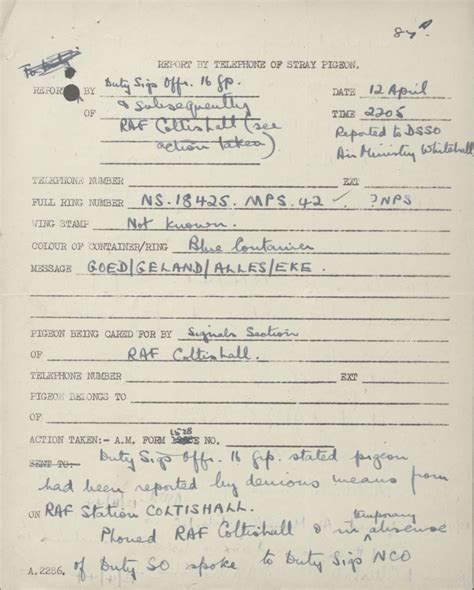 84A
REPORT BY TELEPHONE OF STRAY PIGEON.
REPORT BY Duty Sigs Offr. 16 Gp. DATE 12 April
& subsequently TIME 2205
OF RAF Coltishall (see Reported to DSSO
action taken) Air Ministry Whitehall
TELEPHONE NUMBER EXT
FULL RING NUMBER NS.18425. MPS.42 ✓ ?NPS
WING STAMP Not known.
COLOUR OF CONTAINER/RING Blue Container
MESSAGE GOED/GELAND/ALLES/EKE.
PIGEON BEING CARED FOR BY Signals Section
OF RAF Coltishall.
TELEPHONE NUMBER EXT
PIGEON BELONGS TO
OF
1528
ACTION TAKEN:- A.M. FORM NO.
SENT TO: Duty Sigs Offr. 16 Grp. stated pigeon
had been reported by devious means from
ON RAF Station COLTISHALL.
Phoned RAF Coltishall & in temporary absense
A.2286. of Duty SO spoke to Duty Sigs NCO